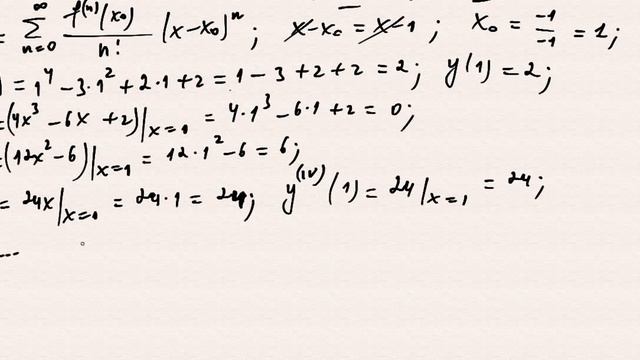 = \sum_{n=0}^{\infty} \frac{f^{(n)}(x_0)}{n!} (x-x_0)^n ; x-x_0 = x-1 ; x_0 = \frac{-1}{-1} = 1;
) = 1^4 - 3·1^2 + 2·1 + 2 = 1 - 3 + 2 + 2 = 2; y(1) = 2;
= (4x^3 - 6x + 2)|_{x=1} = 4·1^3 - 6·1 + 2 = 0;
= (12x^2 - 6)|_{x=1} = 12·1^2 - 6 = 6;
= 24x|_{x=1} = 24·1 = 24; y^{(IV)}(1) = 24|_{x=1} = 24;
...